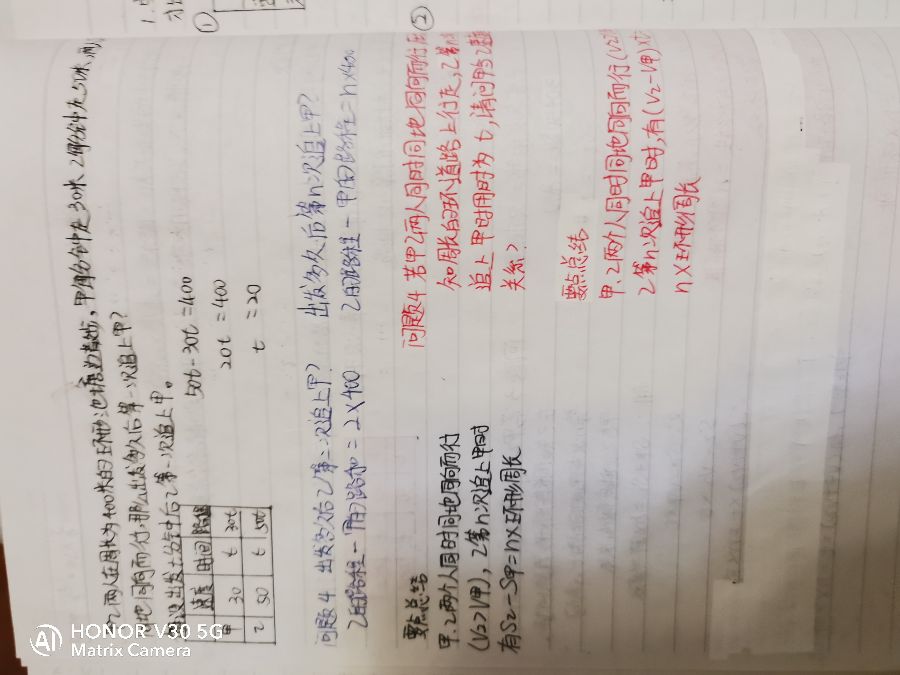 乙两人在周长为400米的环形池塘边散步，甲每分钟走30米 乙每分钟走50米，两
地同向而行，那么出发多久后第一次追上甲？
设出发t分钟后乙第一次追上甲。
速度 时间 路程
甲 30 t 30t
乙 50 t 50t
50t-30t=400
20t=400
t=20
问题4 出发多久后乙第二次追上甲？
乙的路程-甲的路程=2×400
出发多久后第n次追上甲？
乙的路程-甲的路程=n×400
要点总结
甲、乙两个人同时同地同向而行
(V乙>V甲)，乙第n次追上甲时
有S乙-S甲=n×环形周长
①
②
问题4 若甲乙两人同时同地同向而行
知周长的环形道路上行走，乙第n
追上甲时用时为t，请问甲与乙
关系？
要点总结
甲、乙两个人同时同地同向而行(V乙
乙第n次追上甲时，有(V乙-V甲)×t
n×环形周长
HONOR V30 5G
Matrix Camera